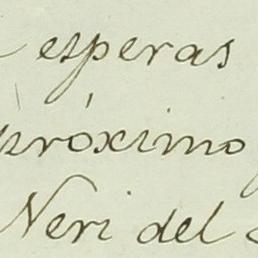 esperas
próximo
Neri del